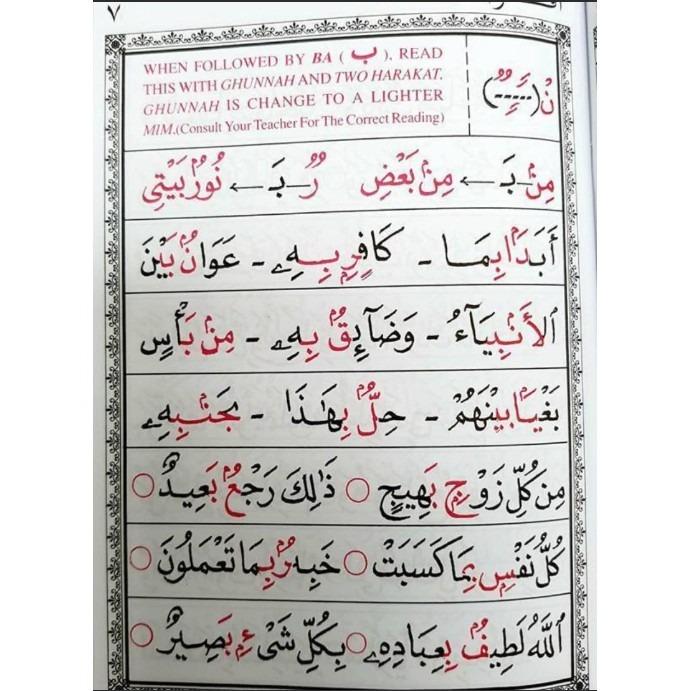 ٧
WHEN FOLLOWED BY BA ( ب ), READ
THIS WITH GHUNNAH AND TWO HARAKAT.
GHUNNAH IS CHANGE TO A LIGHTER
MIM.(Consult Your Teacher For The Correct Reading)
نْ(-----ًٌٍ)
مِنْۢ ← بَـ مِنْۢ بَعْضِ رٌۢ ← بَـ نُورٌۢ بَيْتِى
أَبَدَۢا بِمَا - كَافِرٍۭ بِهِۦ - عَوَانٌۢ بَيْنَ
ٱلْأَنۢبِيَآءُ - وَضَآئِقٌۢ بِهِۦ - مِنۢ بَأْسِ
بَغْيَۢا بَيْنَهُمْ - حِلٌّۢ بِهَٰذَا - بِجَنۢبِهِۦ
مِن كُلِّ زَوْجٍۭ بَهِيجٍ ○ ذَٰلِكَ رَجْعٌۢ بَعِيدٌ ○
كُلُّ نَفْسٍۭ بِمَا كَسَبَتْ ○ خَبِيرٌۢ بِمَا تَعْمَلُونَ ○
ٱللَّهُ لَطِيفٌۢ بِعِبَادِهِۦ ○ بِكُلِّ شَىْءٍۭ بَصِيرٌ ○